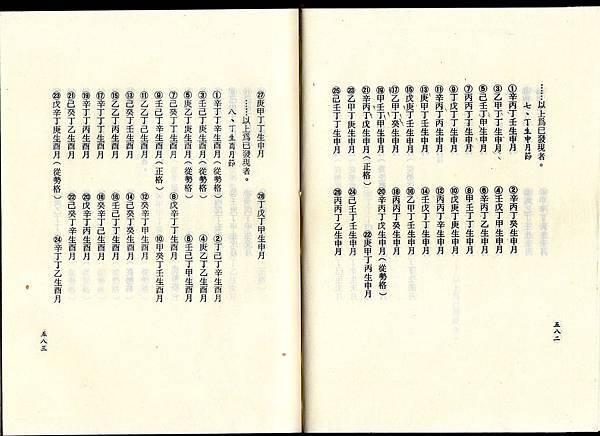 ……以上為已發現者。
七、丁生申月節
①辛丙丁壬生申月 ②辛丙丁癸生申月
③乙甲丁丁生申月、 ④壬戊丁甲生申月
⑤己壬丁甲生申月、 ⑥辛丙丁乙生申月
⑦丙丙丁丁生申月 ⑧甲壬丁丁生申月
⑨丁戊丁丁生申月 ⑩戊庚丁丁生申月
⑪辛丙丁丙生申月 ⑫丙丙丁辛生申月
⑬庚甲丁壬生申月 ⑭壬戊丁壬生申月
⑮戊庚丁壬生申月 ⑯乙甲丁壬生申月
⑰乙甲丁癸生申月 ⑱丙丙丁癸生申月
⑲甲壬丁壬生申月 ⑳辛丙丁戊生申月(從勢格)
㉑辛丙丁戊生申月(正格) ㉒庚甲丁丙生申月
㉓乙甲丁庚生申月 ㉔己壬丁壬生申月
㉕己壬丁丁生申月 ㉖丙丙丁乙生申月
五八二
㉗庚甲丁丁生申月 ㉘丁戊丁甲生申月
……以上為已發現者。
八、丁生酉月節
①辛丁丁辛生酉月(從勢格) ②丁己丁辛生酉月
③壬己丁庚生酉月(從勢格) ④庚乙丁乙生酉月
⑤庚乙丁庚生酉月(從勢格) ⑥壬己丁甲生酉月
⑦己癸丁丁生酉月 ⑧戊辛丁丁生酉月
⑨壬己丁庚生酉月(正格) ⑩甲癸丁壬生酉月
⑪乙乙丁己生酉月 ⑫癸辛丁甲生酉月
⑬己癸丁壬生酉月 ⑭己癸丁癸生酉月
⑮乙乙丁丙生酉月 ⑯壬己丁丁生酉月
⑰辛丁丁丙生酉月 ⑱癸辛丁己生酉月
⑲辛丁丁丙生酉月 ⑳戊辛丁丙生酉月
㉑己癸丁乙生酉月 ㉒己癸丁辛生酉月
㉓戊辛丁庚生酉月(從勢格) ㉔辛丁丁乙生酉月
五八三